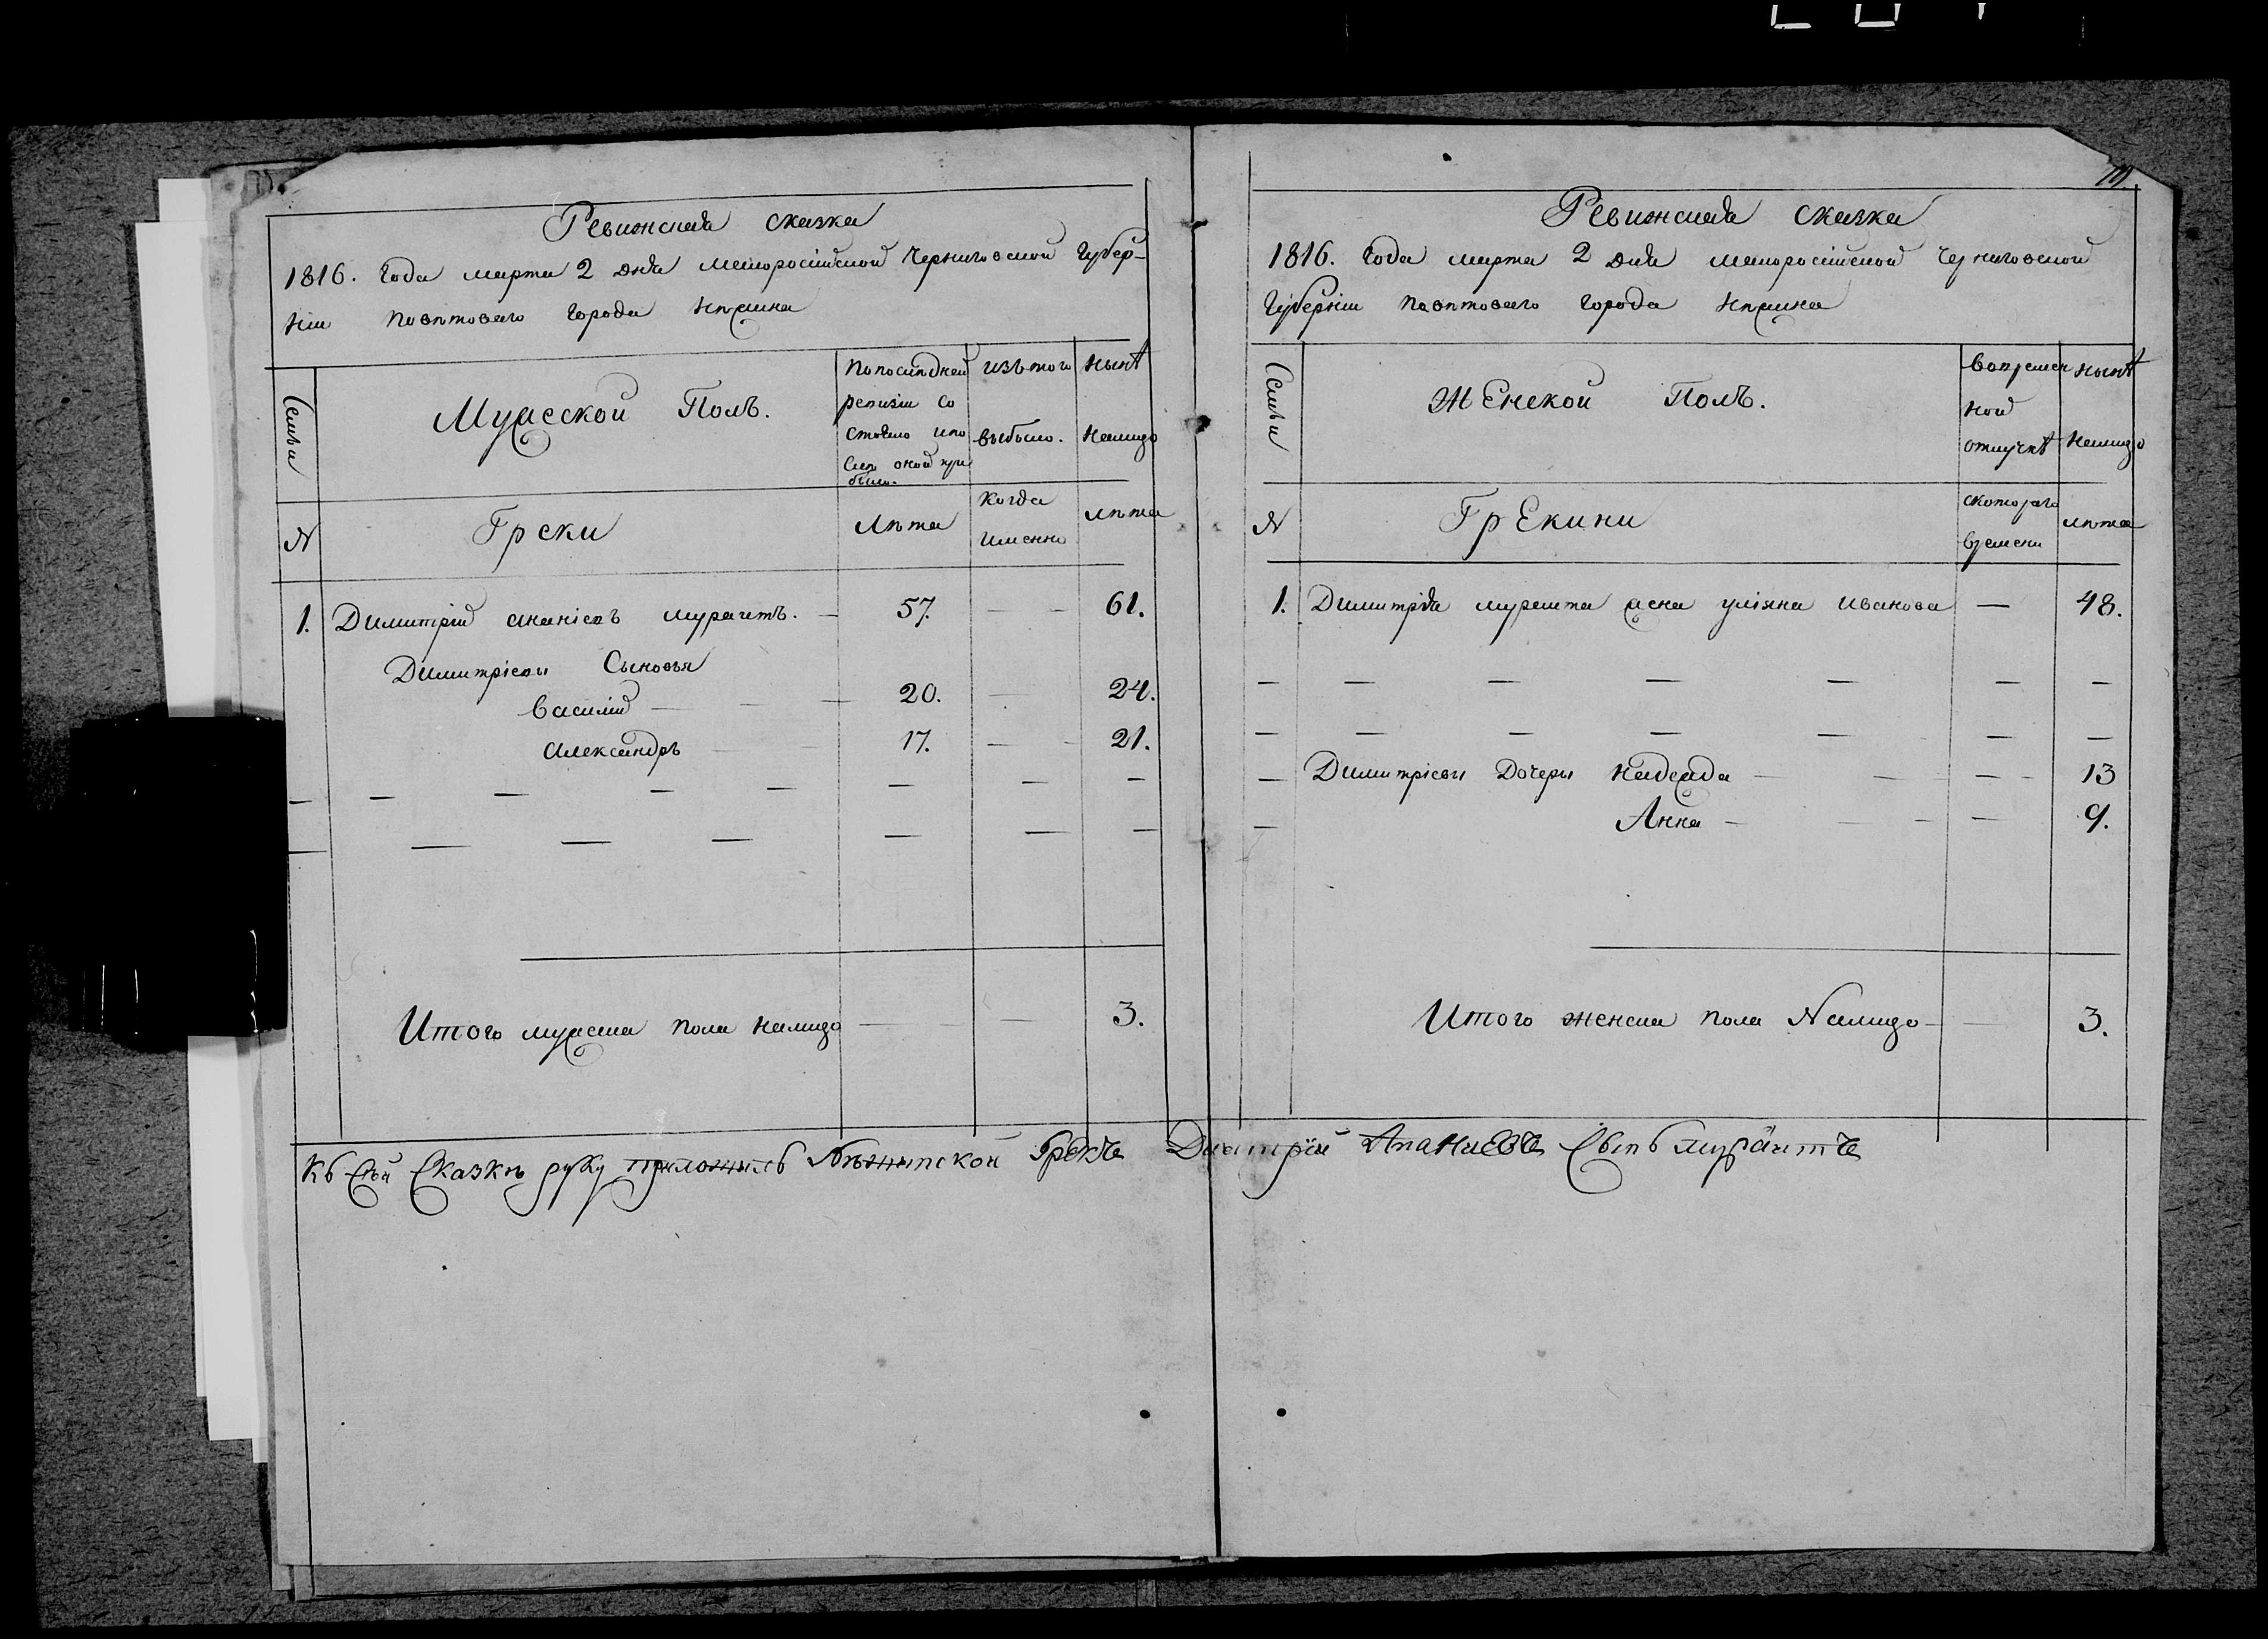 Ревижская сказка
1816. года марта 2 дня малоросійской Черниговской Губер-
ніи повѣтоваго города Нѣжина
Семьи
Мужеской Полъ.
По послѣдней
ревизіи со
стояло и по
слѣ оной при
было.
изъ того
выбыло.
нынѣ
на лицо
№
Греки
лѣта
когда
именно
лѣта
1. Димитрій ананіевъ мураитъ. — 57. — — 61.
Димитріевы Сыновья
василій — — — 20. — 24.
александръ — — 17. — — 21.
Итого мужеска пола на лицо — — — 3.
19.
Ревижская сказка
1816. года марта 2 дня малоросійской Черниговской
Губерніи повѣтоваго города Нѣжина
Семьи
Женской Полъ.
во времен
ной
отлучкѣ
нынѣ
на лицо
№
Грекини
с котораго
времени
лѣта
1. Димитрія мураита жена уліяна иванова — 48.
— Димитріевы Дочери надежда — — — — 13
— Анна — — — — 9.
Итого женска пола Налицо — — 3.
Къ сей Сказкѣ руку приложилъ Нѣжинской Грекъ Димитрій Ананиевъ Сынъ мураитъ